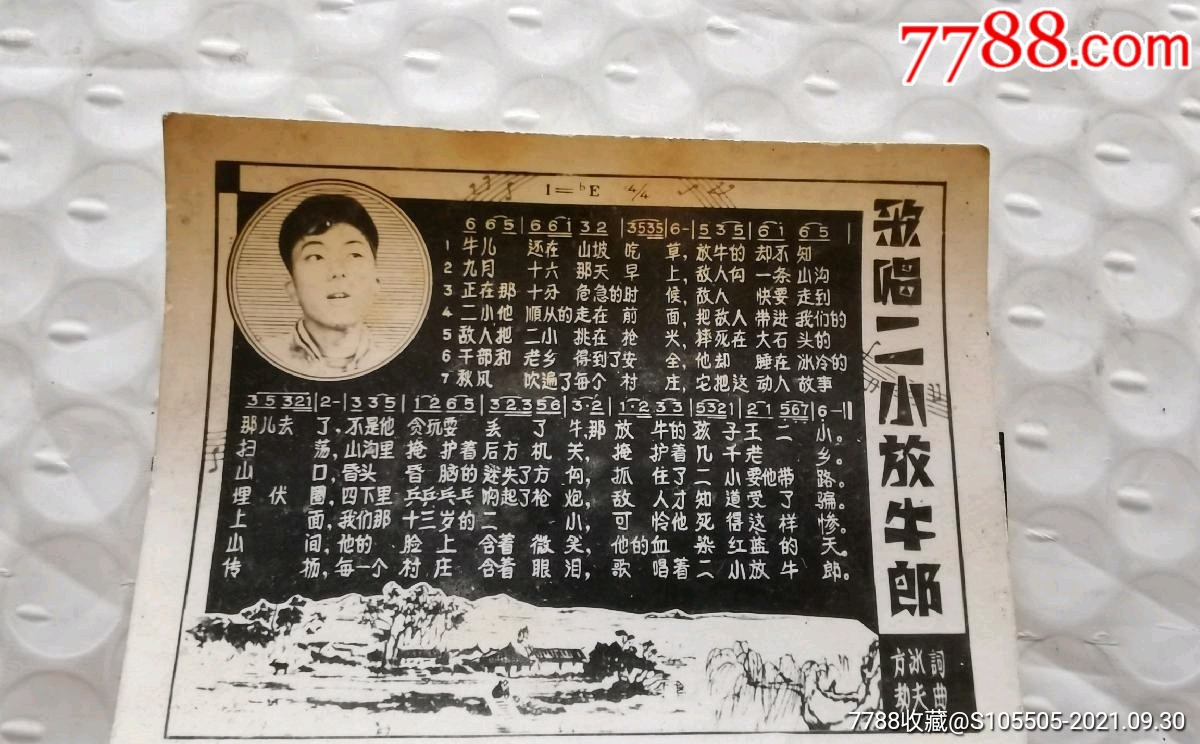 7788.com
歌唱二小放牛郎
1=ᵇE 4/4
6 6 5 | 6 6 1 3 2 | 3535 | 6 - | 5 3 5 | 6 1 6 5 |
1 牛儿 还在 山坡 吃 草, 放牛的 却不知
2 九月 十六 那天 早 上, 敌人向 一条山沟
3 正在那 十分 危急的时 候, 敌人 快要 走到
4 二小他 顺从的走在 前 面, 把敌人 带进 我们的
5 敌人把 二小 挑在 抢 米, 摔死在 大石 头的
6 干部和 老乡 得到了安 全, 他却 睡在 冰冷的
7 秋风 吹遍了每个 村 庄, 它把这 动人 故事
3 5 321 | 2 - | 3 3 5 | 1 2 6 5 | 3 2 3 56 | 3·2 | 1·2 3 3 | 5321 | 2 1 567 | 6 - ||
那儿去 了, 不是他 贪玩耍 丢 了 牛, 那 放 牛的 孩 子王 二 小。
扫 荡, 山沟里 掩 护着后方 机 关, 掩 护着 几千老 乡。
山 口, 昏头 昏 脑的迷失了方 向, 抓 住了 二小要他带 路。
埋伏 圈, 四下里 乒乒乓乓 响起了枪 炮, 敌 人才 知道受 了 骗。
上 面, 我们那 十三岁的二 小, 可 怜他 死得这 样 惨。
山 间, 他的 脸 上 含着 微 笑, 他的血 染红蓝 的 天。
传 扬, 每一个 村 庄 含着 眼 泪, 歌 唱着 二小放牛 郎。
方冰 詞
劫夫 曲
7788收藏@S105505-2021.09.30